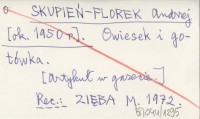 SKUPIEŃ-FLOREK Andrzej
[ok. 1950 r]. Owiesek i go-
tówka.
[artykuł w gazecie.]
Rec.: ZIĘBA M. 1972.